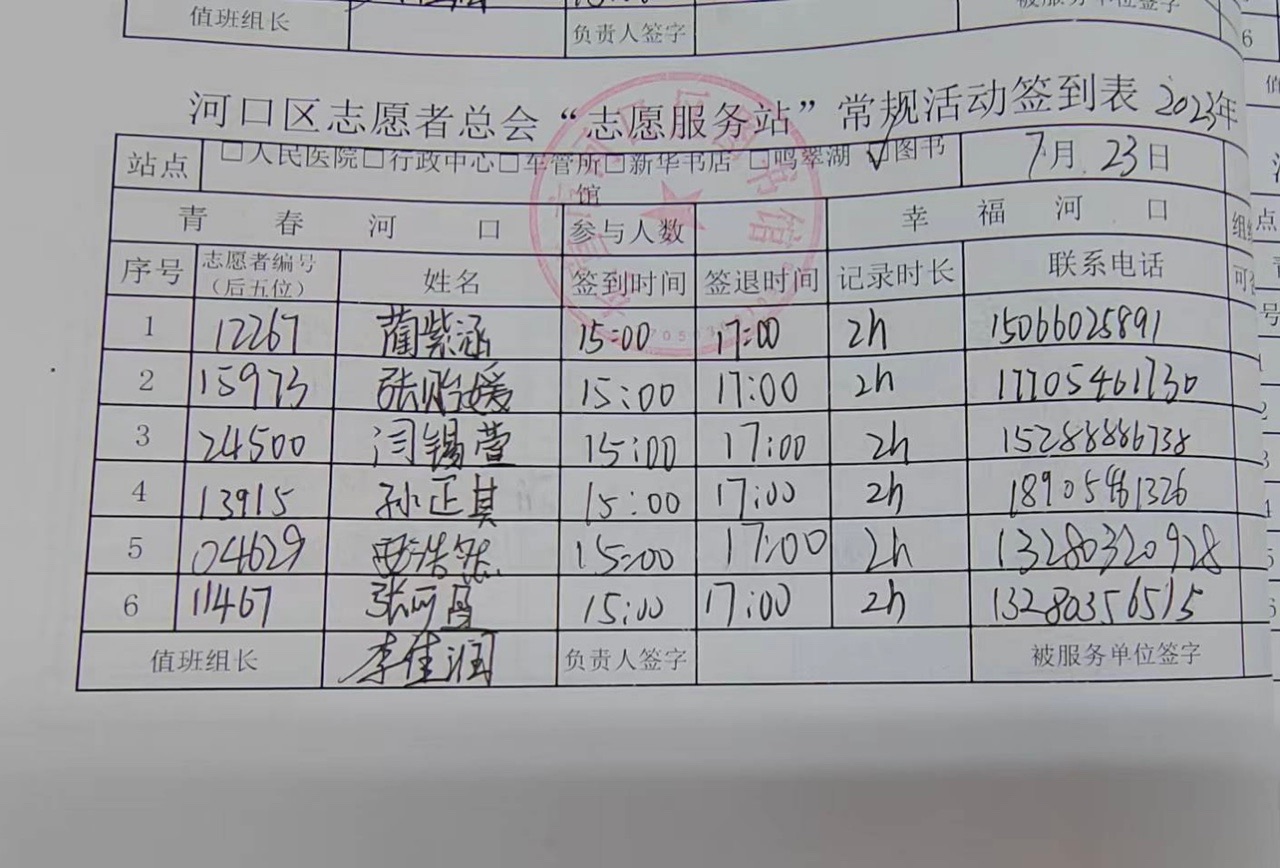 值班组长 负责人签字 被服务单位签字 6
河口区志愿者总会“志愿服务站”常规活动签到表 2023年
站点 □人民医院□行政中心□车管所□新华书店 □鸣翠湖 ☑图书馆 7月23日
青春河口 参与人数 幸福河口
序号 志愿者编号（后五位） 姓名 签到时间 签退时间 记录时长 联系电话
1 12267 蔺紫涵 15:00 17:00 2h 15066025891
2 15973 张贻媛 15:00 17:00 2h 17705461730
3 24500 闫锡萱 15:00 17:00 2h 15288886738
4 13915 孙正其 15:00 17:00 2h 18905461326
5 04629 浩然 15:00 17:00 2h 13280320928
6 11467 张 15:00 17:00 2h 13280356515
值班组长 李佳润 负责人签字 被服务单位签字